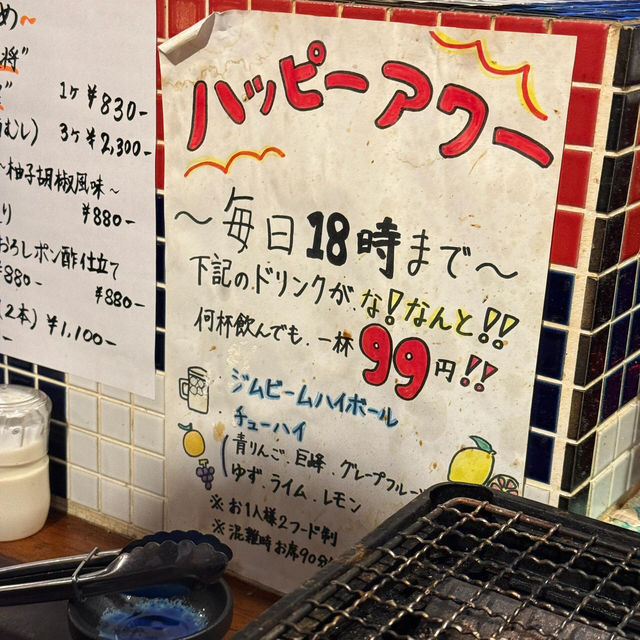 め～
将"
1ケ ¥830-
むし) 3ケ ¥2,300-
～柚子胡椒風味～
り ¥880-
おろしポン酢仕立て
¥880- ¥880-
(2本) ¥1,100-
ハッピーアワー
～毎日18時まで～
下記のドリンクが な!なんと!!
何杯飲んでも、一杯99円!!
ジムビームハイボール
チューハイ
青りんご、巨峰、グレープフルーツ
ゆず、ライム、レモン
※お1人様2フード制
※混雑時お席90分